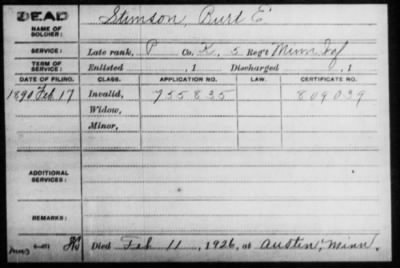 DEAD
NAME OF SOLDIER: Stimson, Burt E.
SERVICE: Late rank, P Co. K, 5 Reg't Minn Inf
TERM OF SERVICE: Enlisted , 1 Discharged , 1
DATE OF FILING. CLASS. APPLICATION NO. LAW. CERTIFICATE NO.
1890 Feb 17 Invalid, 755835 809039
Widow,
Minor,
ADDITIONAL SERVICES:
REMARKS:
Died Feb 11, 1926, at Austin, Minn.